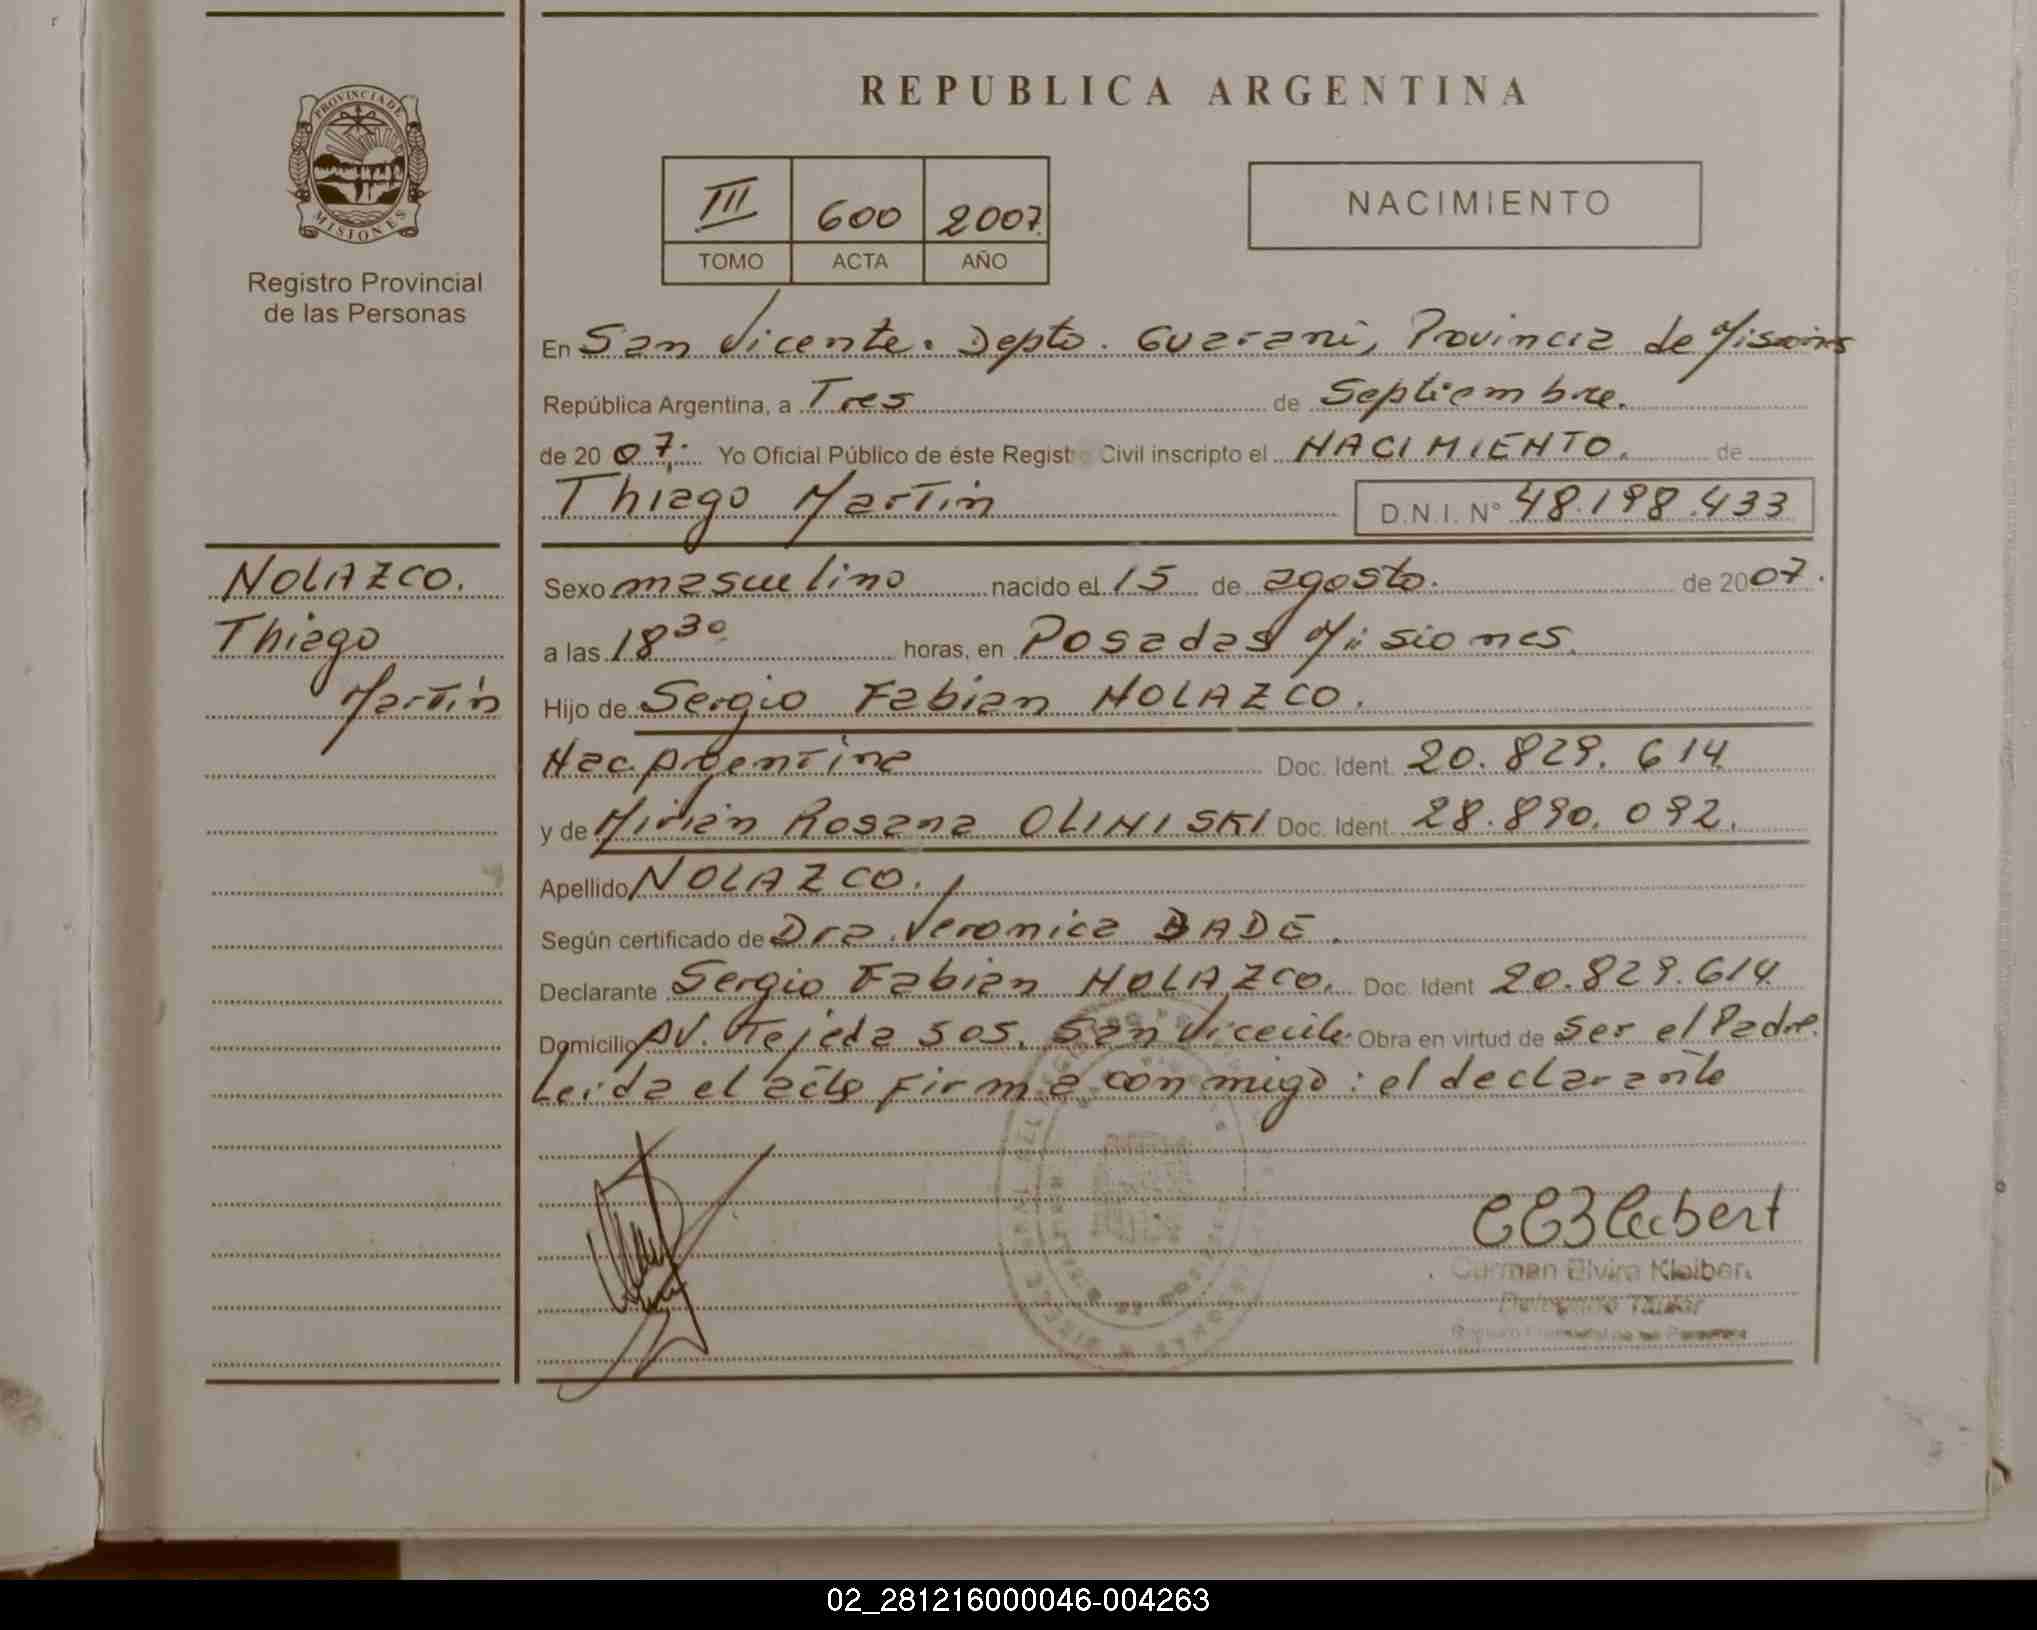 REPUBLICA ARGENTINA
PROVINCIA DE
MISIONES
Registro Provincial
de las Personas
III 600 2007
TOMO ACTA AÑO
NACIMIENTO
En San Vicente. Depto. Guarani, Provincia de Misiones
República Argentina, a Tres de Septiembre.
de 2007. Yo Oficial Público de éste Registro Civil inscripto el NACIMIENTO. de
Thiago Martin D.N.I. N° 48.198.433
NOLAZCO.
Thiago
Martin
Sexo masculino nacido el 15 de agosto. de 2007.
a las 18 30 horas, en Posadas Misiones.
Hijo de Sergio Fabian NOLAZCO.
Nac. Argentina Doc. Ident. 20.829.614
y de Mirian Rosana OLINISKI Doc. Ident. 28.890.092.
Apellido NOLAZCO.
Según certificado de Dra. Veronica BADE.
Declarante Sergio Fabian NOLAZCO. Doc. Ident 20.829.614
Domicilio AV. Tejeda 505. San Vicente. Obra en virtud de ser el Padre.
Leida el acta firma con migo: el declarante
Carmen Elvira Kleiber
Delegada Titular
02_281216000046-004263